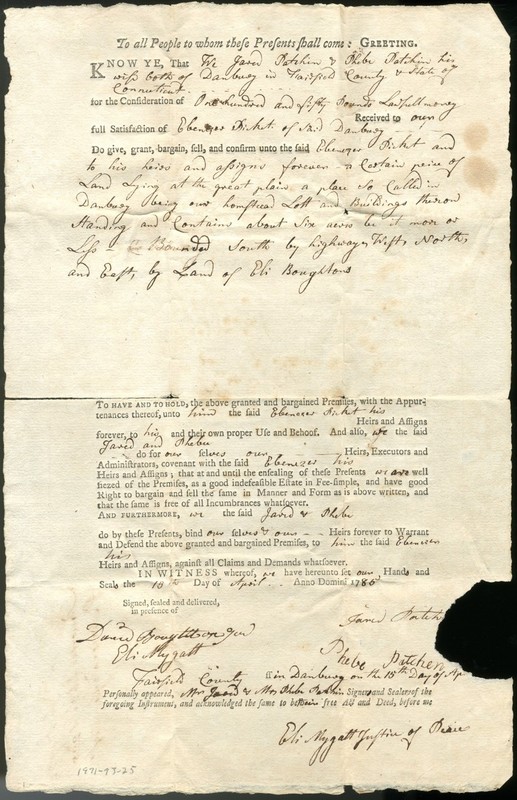 To all People to whom these Presents shall come: GREETING.
KNOW YE, That We Jared Patchen & Phebe Patchen his
wife both of Danbury in Fairfield County & State of
Connecticut
for the Consideration of One hundred and fifty Pounds Lawfull money
Received to our
full Satisfaction of Ebenezer Picket of said Danbury
Do give, grant, bargain, sell, and confirm unto the said Ebenezer Picket and
to his heirs and assigns forever a Certain peice of
Land Lying at the great plain a place So Called in
Danbury being our homstead Lott and Buildings theron
Standing and Contains about Six acres be it more or
Less - Bounded South by highway, West, North,
and East, by Land of Eli Boughtons
TO HAVE AND TO HOLD, the above granted and bargained Premises, with the Appur-
tenances thereof, unto him the said Ebenezer Picket his
Heirs and Assigns
forever, to his and their own proper Use and Behoof. And also, we the said
Jared and Phebe
do for our selves our Heirs, Executors and
Administrators, covenant with the said Ebenezer his
Heirs and Assigns; that at and until the ensealing of these Presents we are well
seized of the Premises, as a good indefeasible Estate in Fee-simple, and have good
Right to bargain and sell the same in Manner and Form as is above written, and
that the same is free of all Incumbrances whatsoever.
AND FURTHERMORE, we the said Jared & Phebe
do by these Presents, bind our selves & our Heirs forever to Warrant
and Defend the above granted and bargained Premises, to him the said Ebenezer
his
Heirs and Assigns, against all Claims and Demands whatsoever.
IN WITNESS whereof, we have hereunto set our Hands and
Seals the 18th Day of April Anno Domini 1785
Signed, sealed and delivered,
in presence of
Jared Patche
Eli Mygatt
Phebe Patchen
Fairfield County ss in Danbury on the 18th Day of Ap
Personally appeared, Mr Jared & Mrs Phebe Patchin Signers and Sealers of the
foregoing Instrument, and acknowledged the same to be their free Act and Deed, before me
Eli Mygatt Justice of Peace
1971-93-25